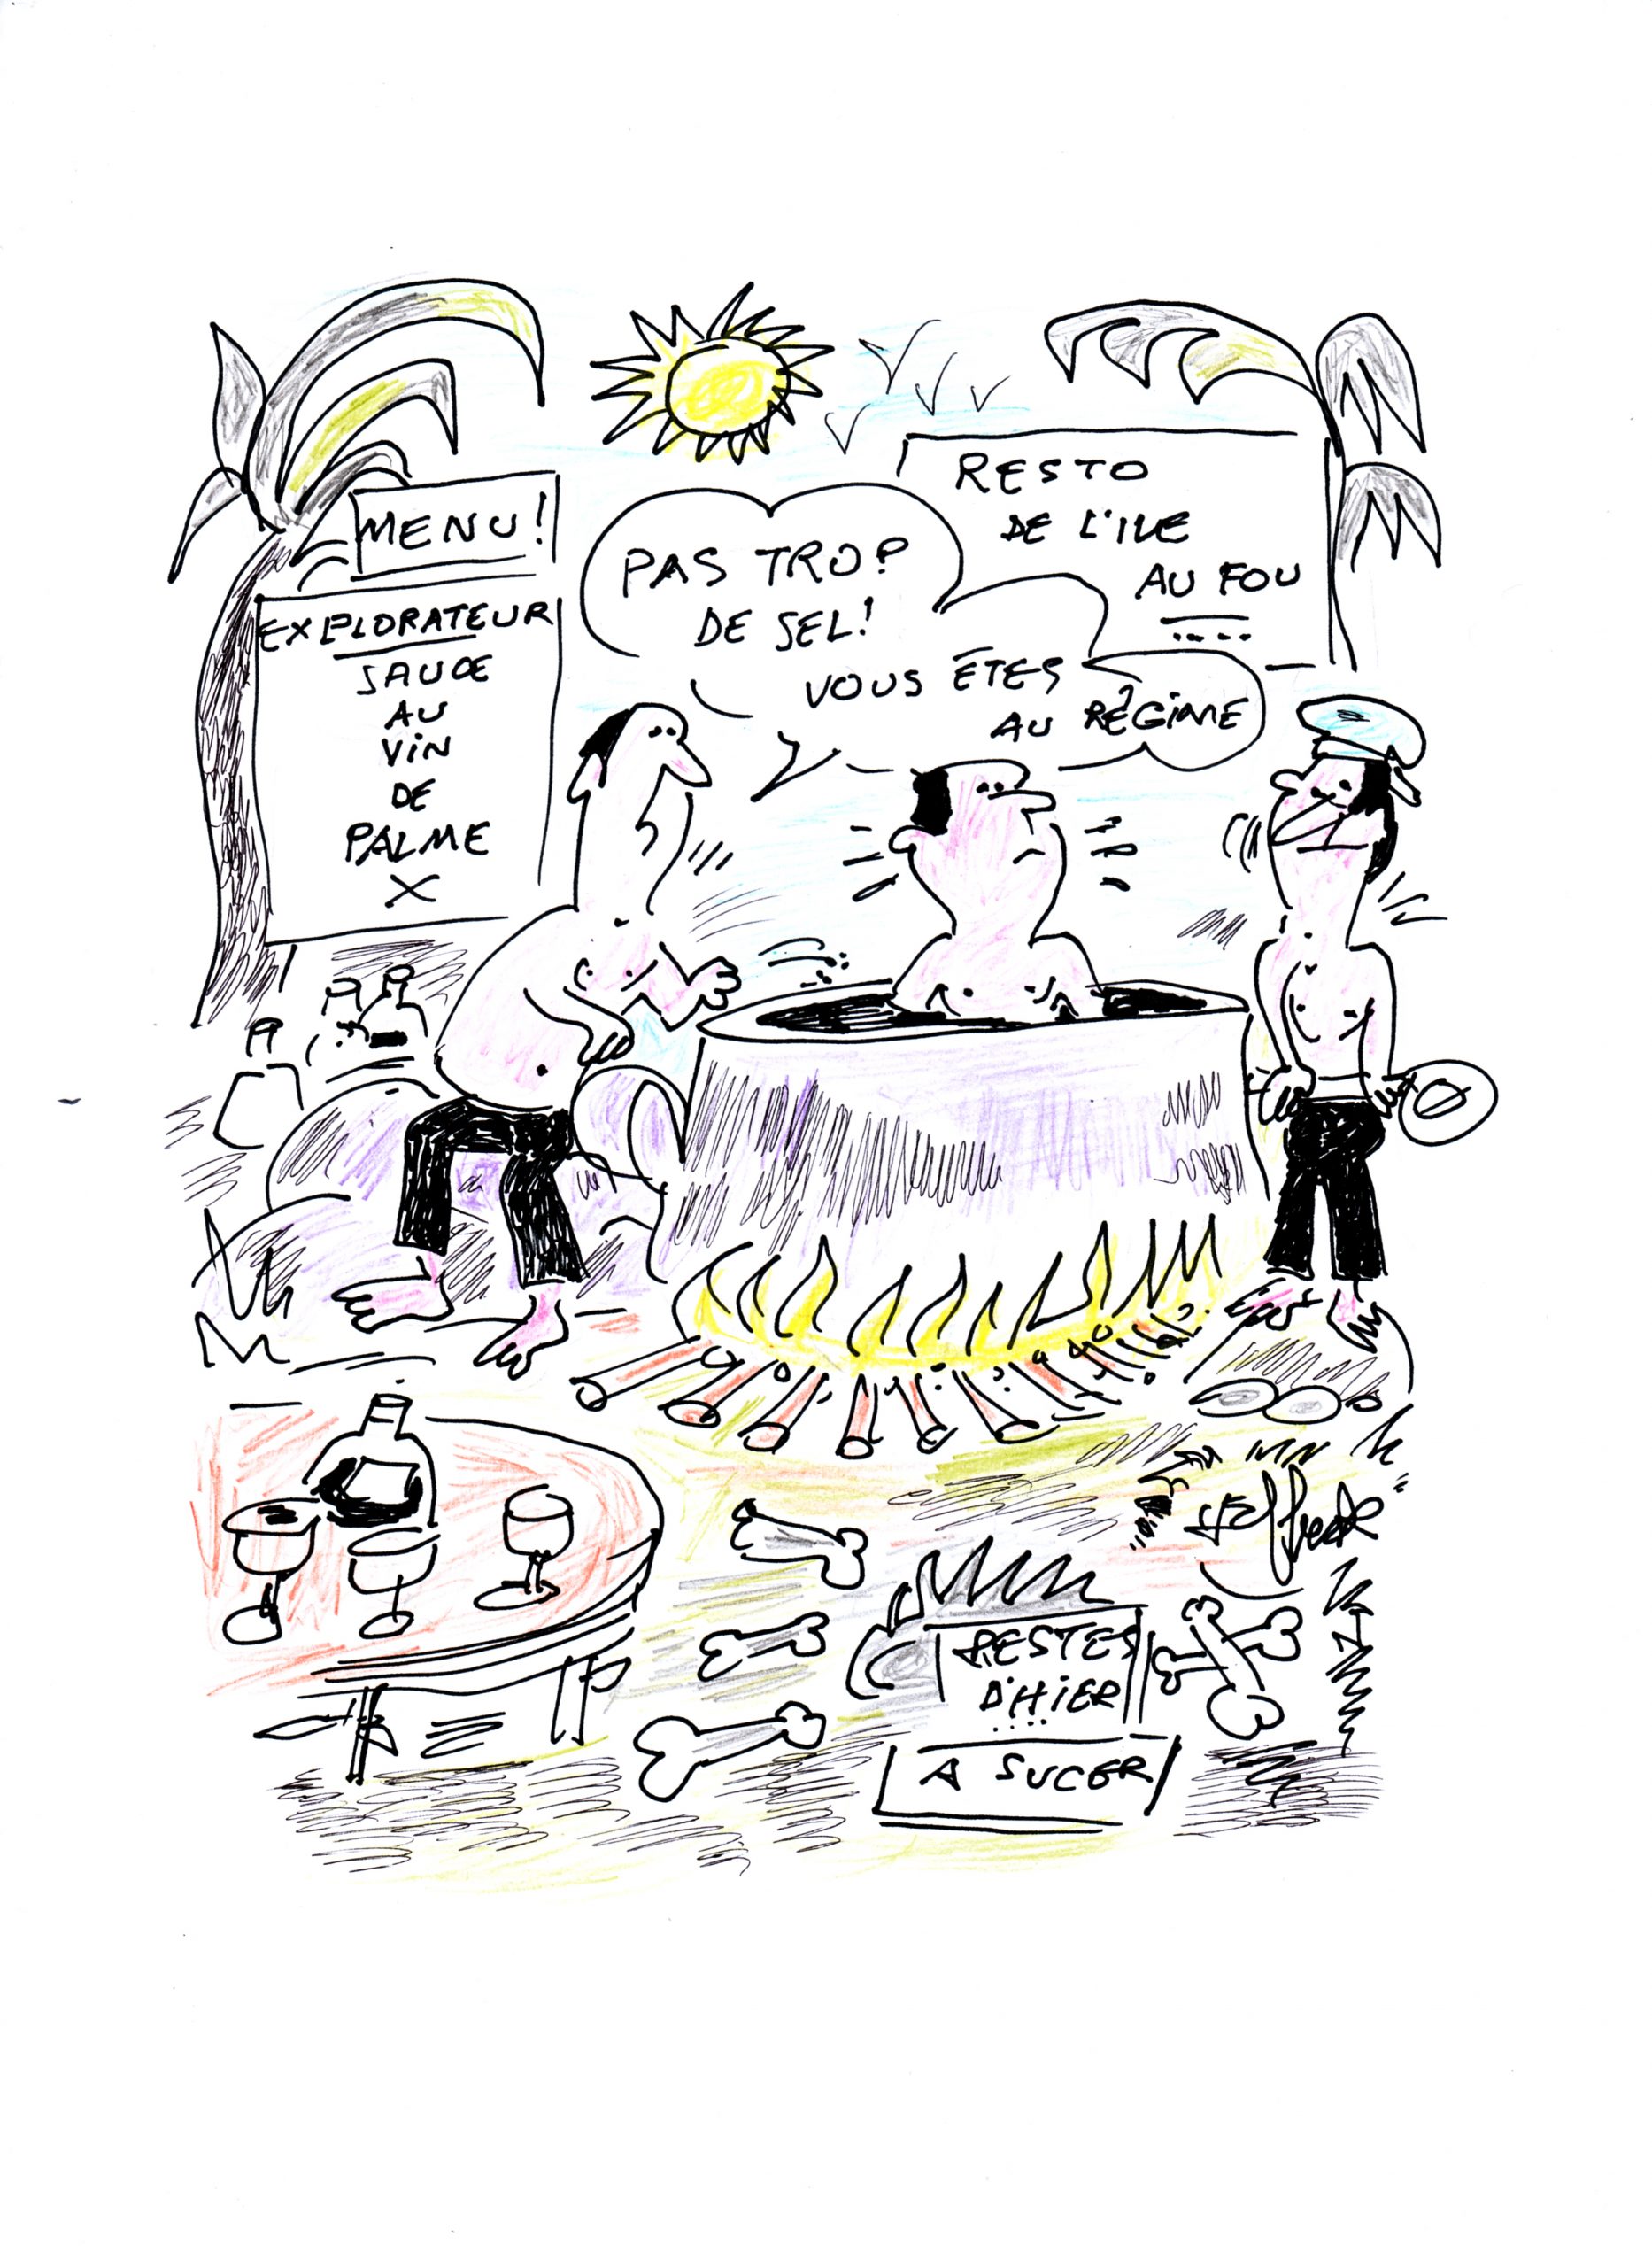 MENU!
EXPLORATEUR
SAUCE
AU
VIN
DE
PALME
X
RESTO
DE L'ILE
AU FOU
PAS TROP
DE SEL!
VOUS ÊTES
AU RÉGIME
RESTES
D'HIER
A SUCER